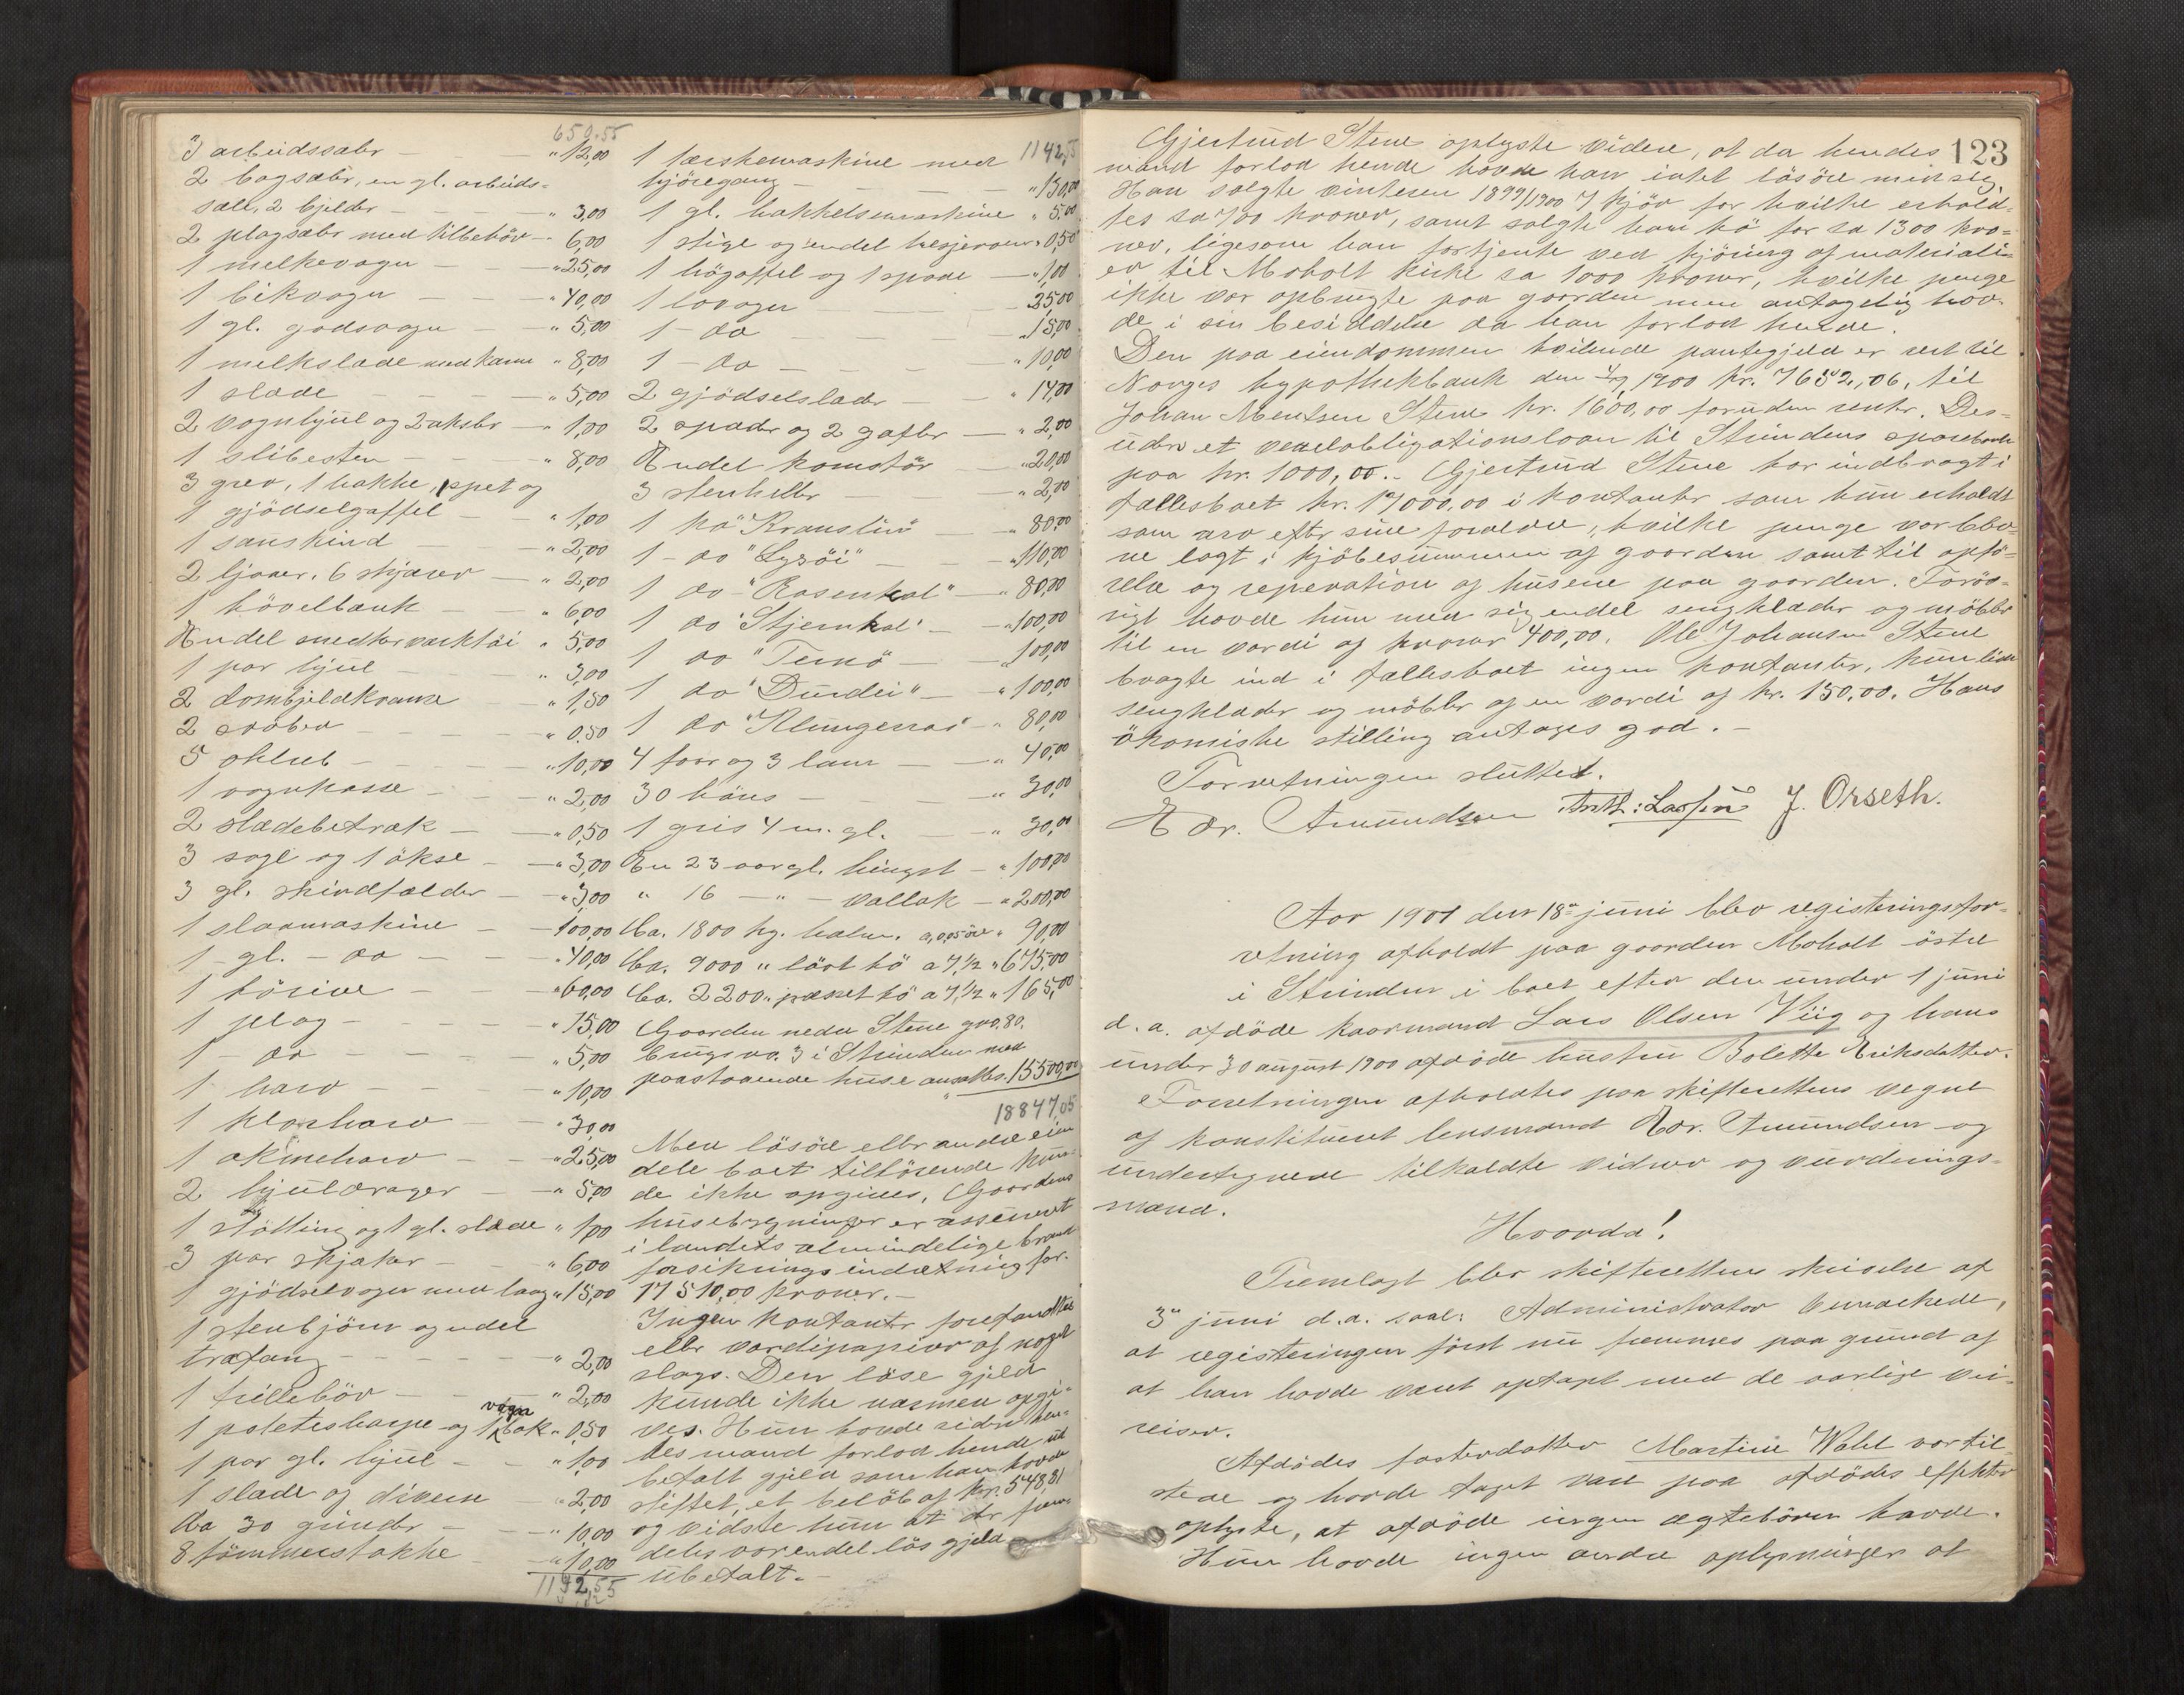 659.55
3 arbeidssæler - - - " 12,00
2 bogsæler, en gl. arbeids-
sæle, 2 bjelder - - - " 3,00
2 plogsæler med tilbehör - " 6,00
1 melkevogn - - - " 25,00
1 - - - " 40,00
1 gl. godsvogn - - " 5,00
1 melkslæde med karm " 8,00
1 slæde - - - " 5,00
2 vognhjul og 2 aksler - " 1,00
1 slibesten - - - " 8,00
3 grev, 1 hakke, 1 spet og
1 gjödselgaffel - - " 1,00
1 saueskind - - " 2,00
2 ljaaer, 6 skjærer - " 2,00
1 hövelbænk - - " 6,00
Endel smedverværktöi " 5,00
1 par hjul - - " 3,00
2 dombjeldkranse " 1,50
2 - - - " 0,50
5 - - - " 10,00
1 vognkasse - - " 2,00
2 slædebetræk - - " 0,50
3 sage og 1 ökse - - " 3,00
3 gl. skindfælder - - " 3,00
1 slaamaskine - - 100,00
1 - gl. - do - - " 40,00
1 hörive - - " 60,00
1 plog - - - " 15,00
1 - do - - - " 5,00
1 harv - - - " 10,00
1 - - " 30,00
1 - - " 25,00
2 hjuldrager - - " 5,00
1 stötting og 1 gl. slæde " 1,00
3 par skjæker - - " 6,00
1 gjödselvogn med laag " 15,00
1 stenbjörn og endel
træfang - - - " 2,00
1 trillebör - - - " 2,00
1 potetesharpe og 1 vogn bak " 0,50
1 par gl. hjul - - " 1,00
1 slæde og diverse " 2,00
Ca 30 grinder - - " 10,00
8 tömmerstokke - " 10,00
1142,55
1142,55
1 tærskemaskine med
hjöregang - - - " 150,00
1 gl. hakkelsmaskine " 5,00
1 stige og endel hesjerauer " 0,50
1 högaffel og 1 spade - " 1,00
1 lovogn - - - 25,00
1 - do - - - " 15,00
1 - do - - - " 10,00
2 gjödselslæder - - " 14,00
2 spader og 2 gafler - " 2,00
Endel komstör - - " 20,00
3 stenheller - - " 2,00
1 ko "Kranslin" - - " 80,00
1 - do "Lysöi" - - " 110,00
1 do - "Rosenkol" - " 80,00
1 do "Stjernkol" - " 100,00
1 do "Temö - - " 100,00
1 do "Dundei" - " 100,00
1 do "Klungerros" - " 80,00
4 faar og 3 lam - - " 45,00
30 höns - - - " 30,00
1 gris 4 m. gl. - - " 30,00
En 23 aar gl. hingst - " 100,00
" 16 - " - vallak - " 200,00
Ca. 1800 kg. halm. a 0,05 öre " 90,00
Ca. 9000 " löst hö a 7 1/2 " 675,00
Ca. 2200 " presset hö a 7 1/2 " 165,00
Gaarden nedre Stene gno. 80.
brugs no. 3 i Strinden med
paastaaende huse ansattes. 15500,00
18847,05
Mere lösöre eller andre eien
dele boet tilhörende kun-
de ikke opgives. Gaardens
husebygninger er assureret
i landets almindelige brand
forsikrings indretning for.
17510,00 kroner.-
Ingen kontanter forefandtes
eller værdipapirer af noget
slags. Den löse gjeld
kunde ikke nærmere opgi-
ves. Hun havde siden hen-
des mand forlod hende ud
betalt gjeld som han havde
stiftet, et belöb af kr. 548,81
og vidste hun at der frem-
deles var endel lös gjeld
ubetalt.-
123
Gjertrud Stene oplyste videre, at da hendes
mand forlod hende havde han intet lösöre med sig.
Han solgte vinteren 1899/1900 7 kjör for hvilke erhold-
tes ca 700 kroner, samt solgte han hö for ca 1300 kro-
ner, ligesom han fortjente ved kjöring af materiali-
er til Moholt kirke ca 1000 kroner, hvilke penge
ikke var opbrugte paa gaarden men antagelig hav-
de i sin besiddelse da han forlod hende.
Den paa eiendommen hvilende pantegjeld er rest til
Norges hypothekbank den 4/9 1900 kr. 7652,06, til
Johan Mentsen Stene kr. 1600,00 foruden renter. Des-
uden et vexelobligationslaan til Strindens sparebank
paa kr. 1000,00.- Gjertrud Stene har indbragt i
fællesboet kr. 17000,00 i kontanter som hun erholdt
som arv efter sine forældre, hvilke penge var ble-
ne lagt i kjöbesummen af gaarden samt til opfö-
relse og reperation af husene paa gaarden. Foröv-
rigt havde hun med sig endel sengklæder og möbler
til en værdi af kroner 400,00. Ole Johansen Stene
bragte ind i fællesboet ingen kontanter, kun lidt
sengklæder og möbler af en værdi af kr. 150,00. Hans
ökomiske stilling antages god.-
Forretningen sluttet.
Edv. Amundsen Anth: Larsen J. Orseth.
Aar 1901 den 18de juni blev registreringsfor-
retning afholdt paa gaarden Moholt östre
i Strinden i boet efter den under 1 juni
d. a. afdöde kaarmand Lars Olsen Viig og hans
under 30 august 1900 afdöde hustru Bolette Eriksdatter.
Forretningen afholdtes paa skifterettens vegne
af konstitueret lensmand Edv. Amundsen og
undertegnede tilkaldte vidner og vurderings-
mænd.
Hvorda!
Fremlagt blev skifterettens skrivelse af
3de juni d.a. saal: Administrator bemærkede,
at registreringen först nu fremmes paa grund af
at han havde været optaget med de aarlige vei-
reiser.
Afdödes fosterdatter Martine Wahl var til-
stede og havde taget vare paa afdödes effekter
oplyste, at afdöde ingen ægtebörn havde.
Hun havde ingen andre oplysninger at